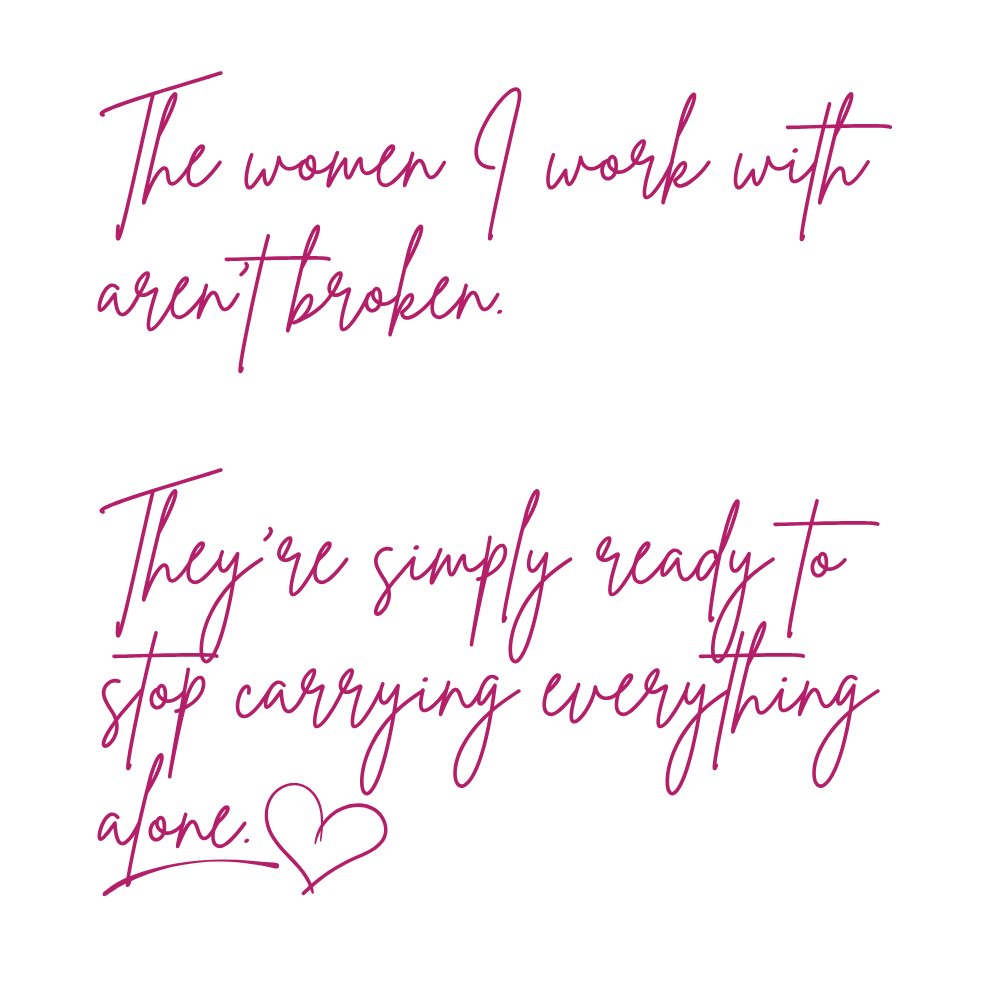 The women I work with
aren't broken.
They're simply ready to
stop carrying everything
alone.